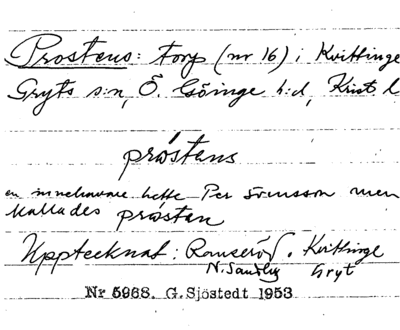 Prostens: torp (nr 16) i Kvittinge
Gryts s:n, Ö. Göinge h:d, Krist l
pròstans
en innehavare hette Per Svensson men
kallades pròstan
Upptecknat: Ramseröd. Kvittinge
N. Sandby Gryt
Nr 5968. G. Sjöstedt 1953